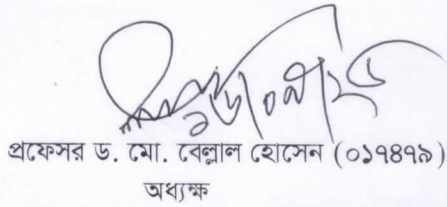 প্রফেসর ড. মো. বেল্লাল হোসেন (০১৭৪৭৯)
অধ্যক্ষ